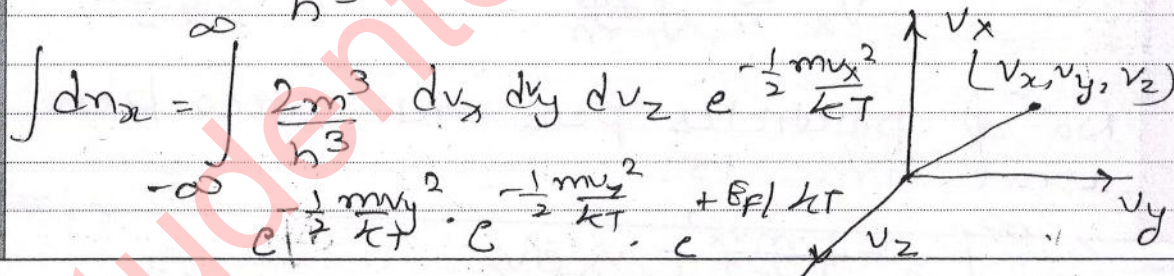 h
∫dnₓ = ∫_{-∞}^{∞} 2m³/h³ dvₓ dvy dvz e^{-½ mvₓ²/kT}
e^{-½ mvy²/kT} · e^{-½ mvz²/kT} · e^{+EF/kT}
vx
(vx, vy, vz)
vy
vz
udent